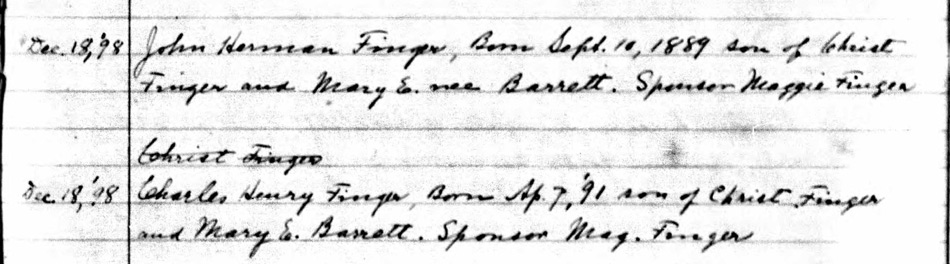 Dec. 18,'98 John Herman Finger, Born Sept. 10, 1889 son of Christ
Finger and Mary E. nee Barrett. Sponsor Maggie Finger
Christ Finger
Dec. 18,'98 Charles Henry Finger, Born Ap. 7,'91 son of Christ Finger
and Mary E. Barrett. Sponsor Mag. Finger